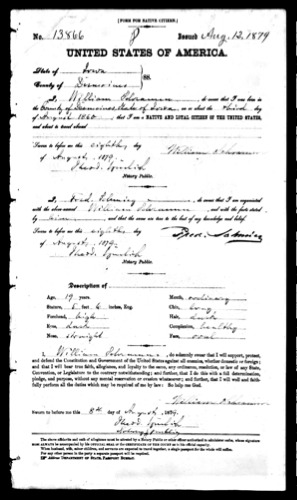 [FORM FOR NATIVE CITIZEN.]
No. 13866 Issued Aug. 12, 1879
UNITED STATES OF AMERICA.
State of Iowa
County of Desmoines } ss.
I, William Schramm, do swear that I was born in the
County of Desmoines, State of Iowa, on or about the third day
of August 1860, that I am a NATIVE AND LOYAL CITIZEN OF THE UNITED STATES,
and about to travel abroad
Sworn to before me this eighth day
of August, 1879 William Schramm
Notary Public.
I, am acquainted
with the above-named William Schramm, and with the facts stated
by him, and that the same are true to the best of my knowledge and belief.
Sworn to before me this eighth day
of August, 1879.
Notary Public.
Description of
Age, 19 years. Mouth, ordinary
Stature, 5 feet 6 inches, Eng. Chin, long
Forehead, high Hair, dark
Eyes, dark Complexion, healthy
Nose, straight Face, oval
I, William Schramm, do solemnly swear that I will support, protect,
and defend the Constitution and Government of the United States against all enemies, whether domestic or foreign;
and that I will bear true faith, allegiance, and loyalty to the same, any ordinance, resolution, or law of any State,
Convention, or Legislature to the contrary notwithstanding; and further, that I do this with a full determination,
pledge, and purpose, without any mental reservation or evasion whatsoever; and further, that I will well and faith-
fully perform all the duties which may be required of me by law: So help me God.
William Schramm
Sworn to before me this 8th day of August, 1879.
Notary Public
The above affidavits and oath of allegiance must be attested by a Notary Public
When husband, wife, minor children, and servants expect to travel together, a single passport for the whole will suffice.
For any other person in the party a separate passport will be required.
Address DEPARTMENT OF STATE, PASSPORT BUREAU.